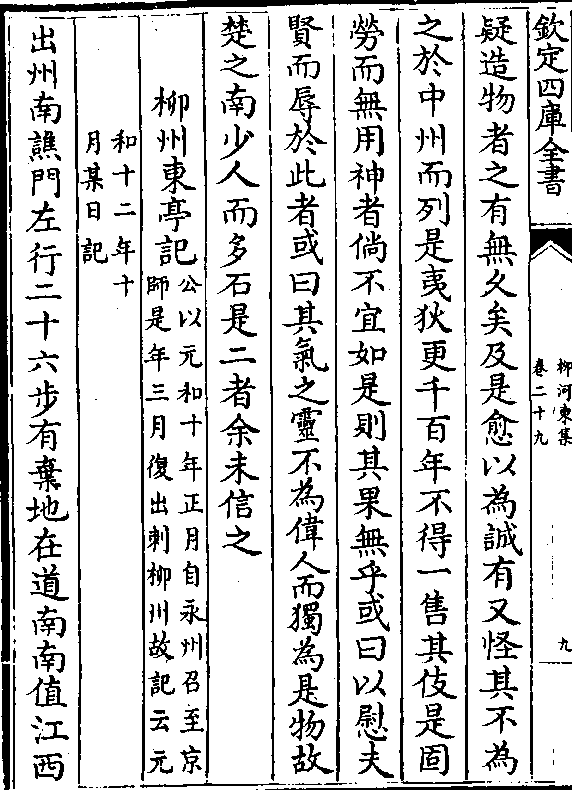 欽定四庫全書
柳河東集
卷二十九
九
疑造物者之有無久矣及是愈以為誠有又怪其不為
之於中州而列是夷狄更千百年不得一售其伎是固
勞而無用神者倘不宜如是則其果無乎或曰以慰夫
賢而辱於此者或曰其氣之靈不為偉人而獨為是物故
楚之南少人而多石是二者余未信之
柳州東亭記公以元和十年正月自永州召至京
師是年三月復出刺柳州故記云元
和十二年十
月某日記
出州南譙門左行二十六步有棄地在道南南值江西